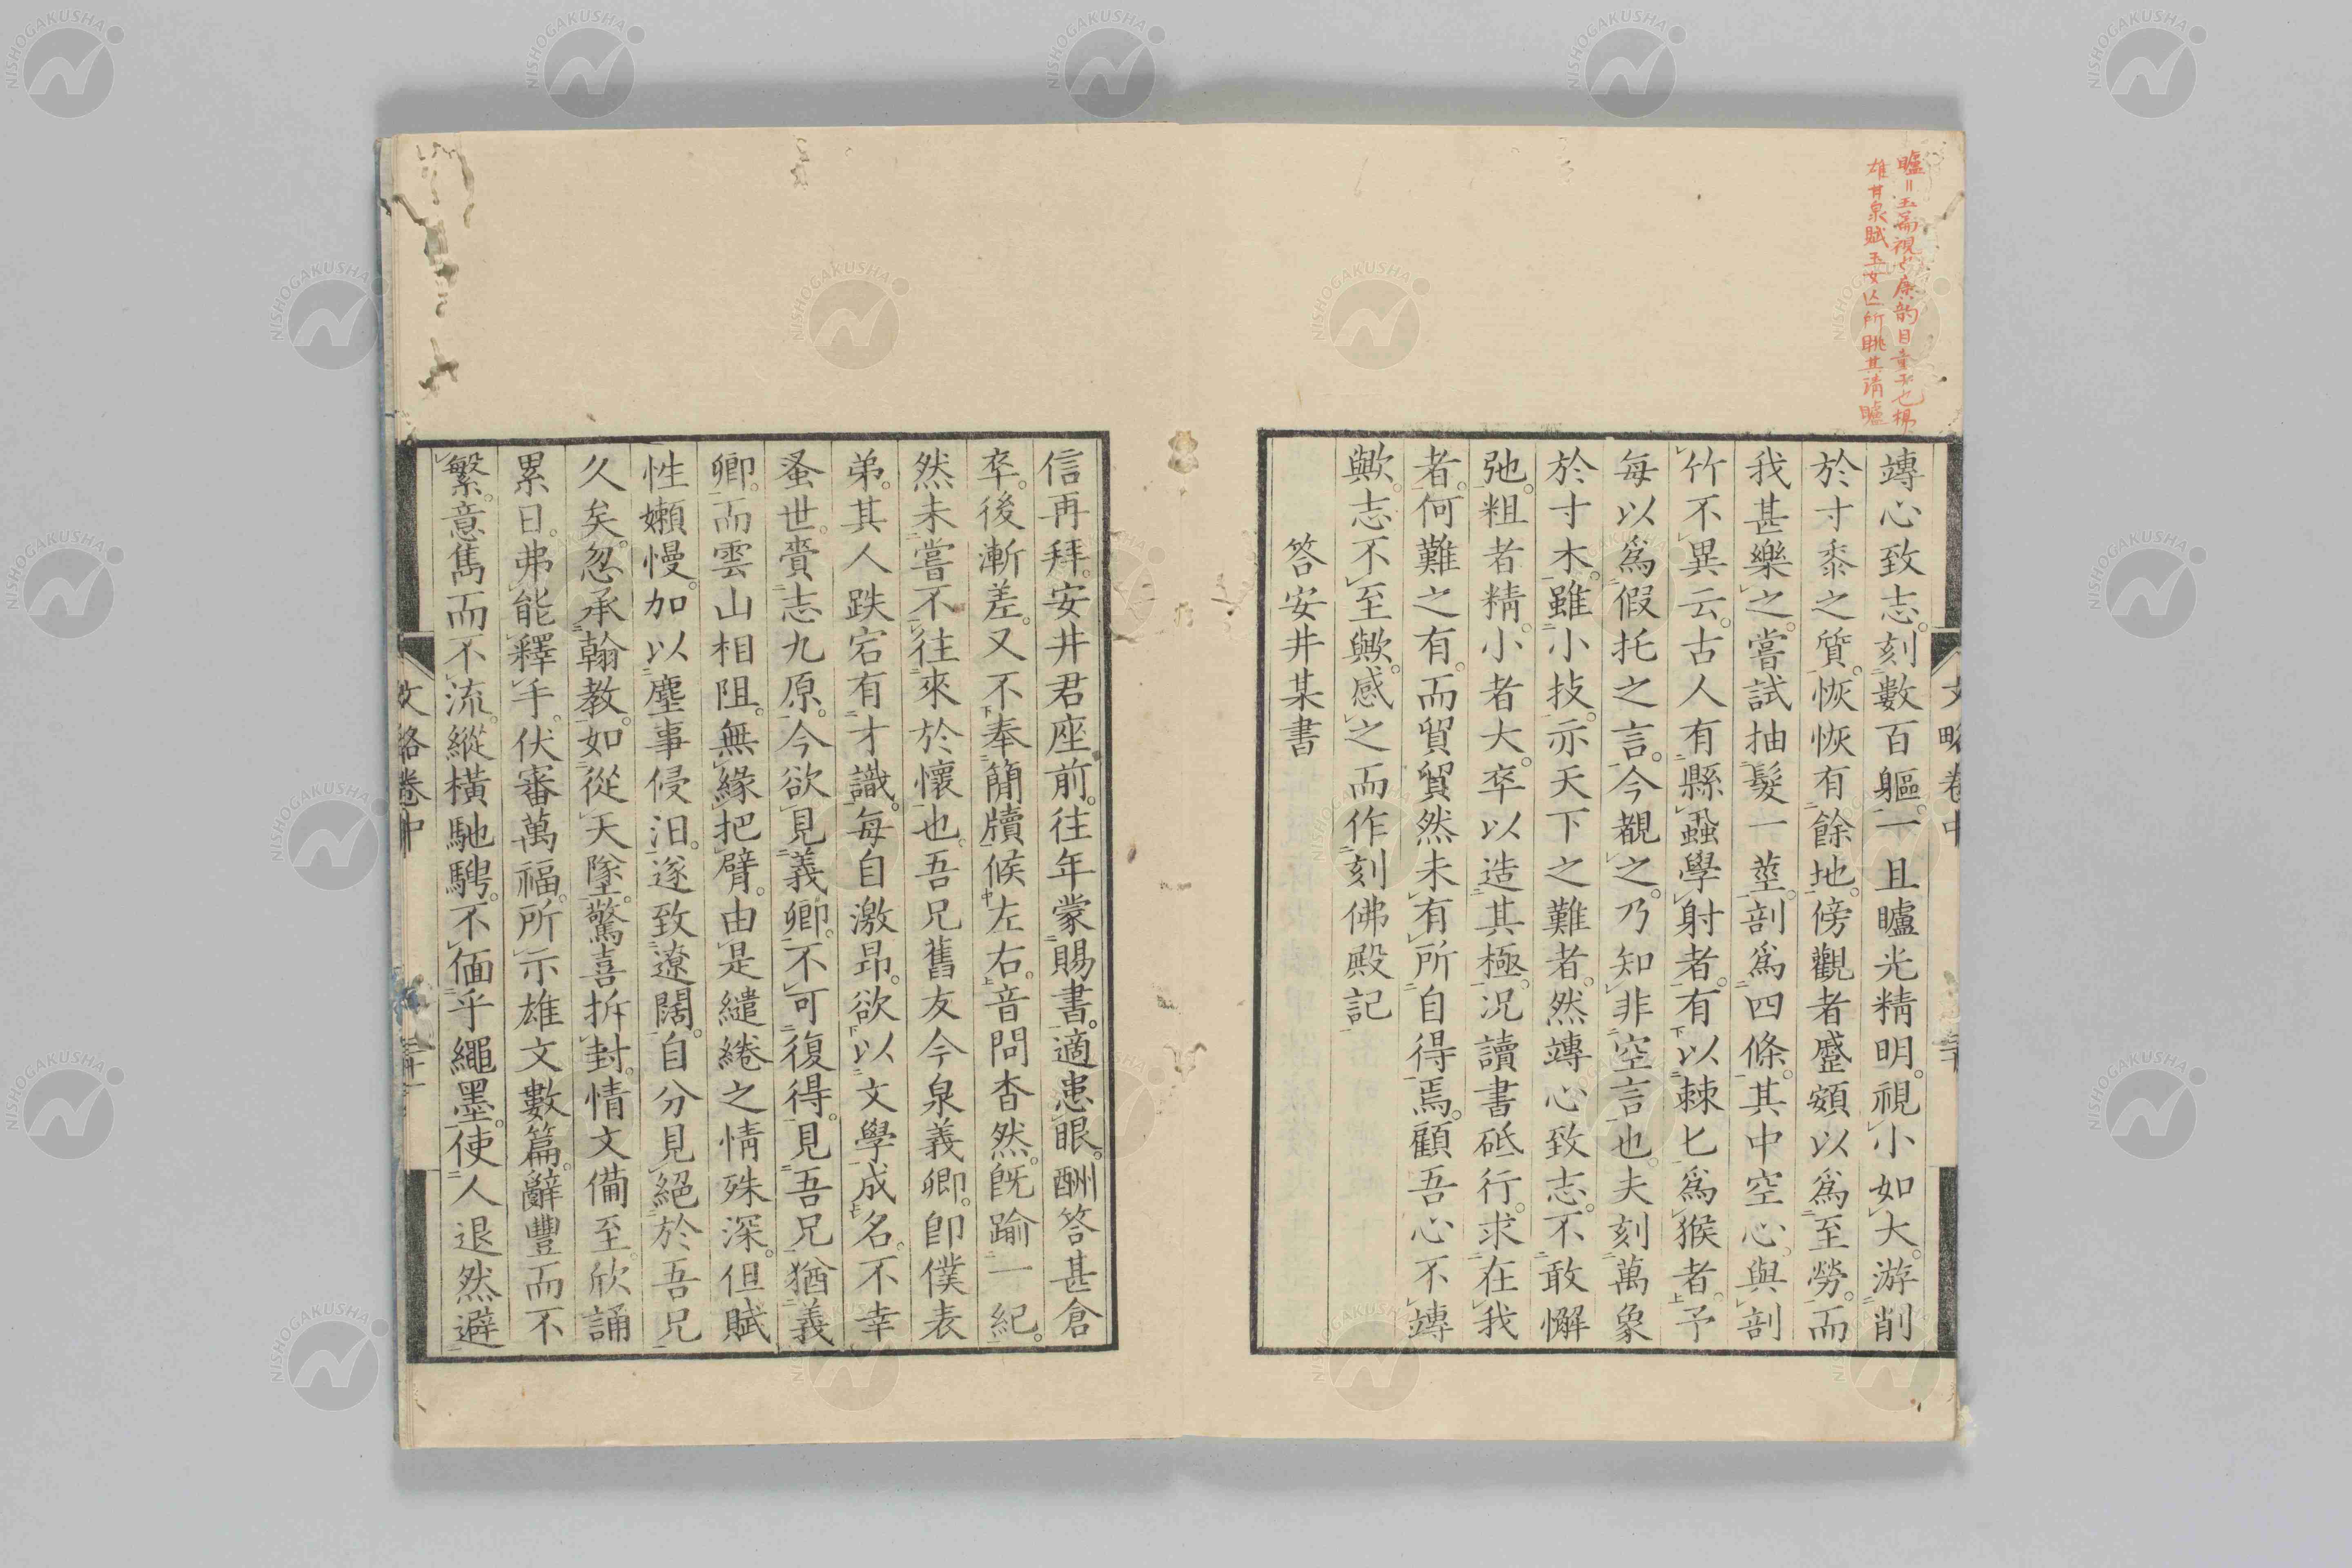 矑＝玉篇視也廣韵目童子也楊
雄甘泉賦玉女亾所眺其清矑
竱心致志。刻數百軀。一旦矑光精明。視小如大。游削
於寸黍之質。恢恢有餘地。傍觀者蹙頞以爲至勞。而
我甚樂之。嘗試抽髮一莖。剖爲四條。其中空心。與剖
竹不異云。古人有縣蝨學射者。有以棘匕爲猴者。予
每以爲假托之言。今覩之。乃知非空言也。夫刻萬象
於寸木。雖小技。亦天下之難者。然竱心致志。不敢懈
弛。粗者精。小者大。卒以造其極。況讀書砥行。求在我
者。何難之有。而貿貿然未有所自得焉。顧吾心不竱
歟。志不至歟。感之而作刻佛殿記
答安井某書
信再拜。安井君座前。往年蒙賜書。適患眼。酬答甚倉
卒。後漸差。又不奉簡牘候左右。音問杳然。旣踰一紀。
然未嘗不往來於懷也。吾兄舊友今泉義卿。卽僕表
弟。其人跌宕有才識。每自激昂。欲以文學成名。不幸
蚤世。賫志九原。今欲見義卿。不可復得。見吾兄猶義
卿。而雲山相阻。無緣把臂。由是繾綣之情殊深。但賦
性嬾慢。加以塵事侵汨。遂致遼闊。自分見絕於吾兄
久矣。忽承翰教。如從天墜。驚喜拆封。情文備至。欣誦
累日。弗能釋手。伏審萬福。所示雄文數篇。辭豐而不
繁。意雋而不流。縱橫馳騁。不偭乎繩墨。使人退然避
文略卷中
文略卷中